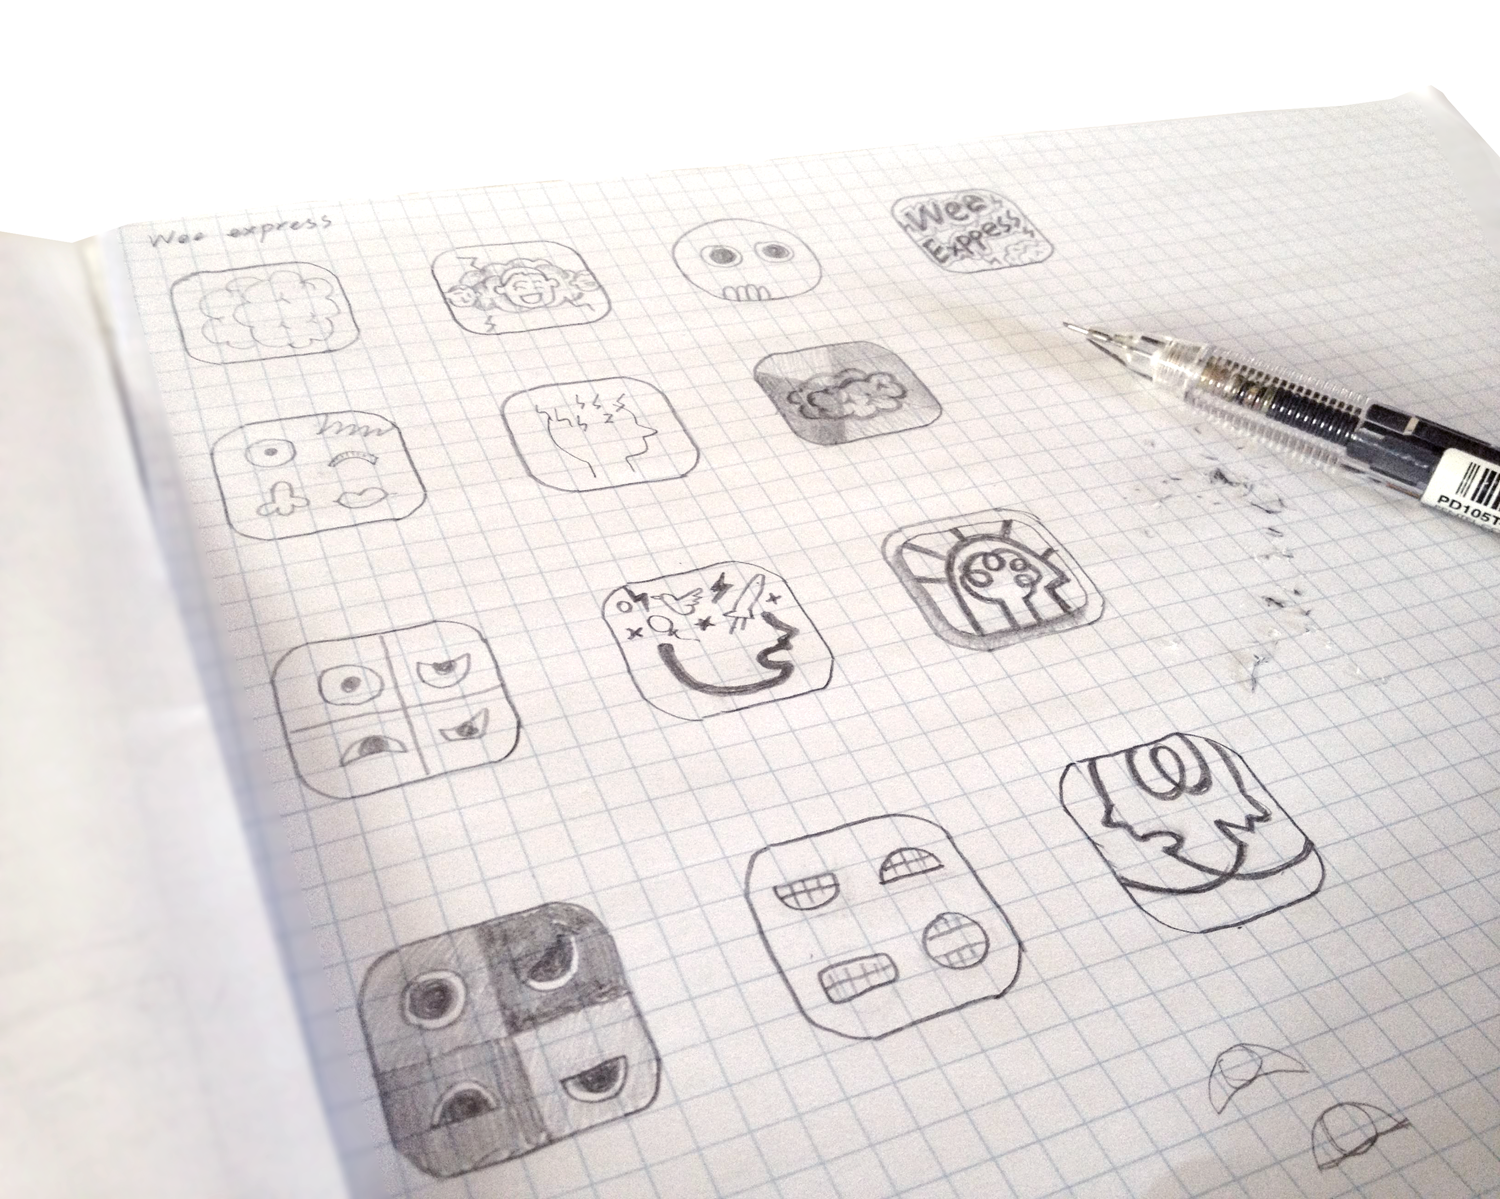 Wee express
Wee
Express
PD105T